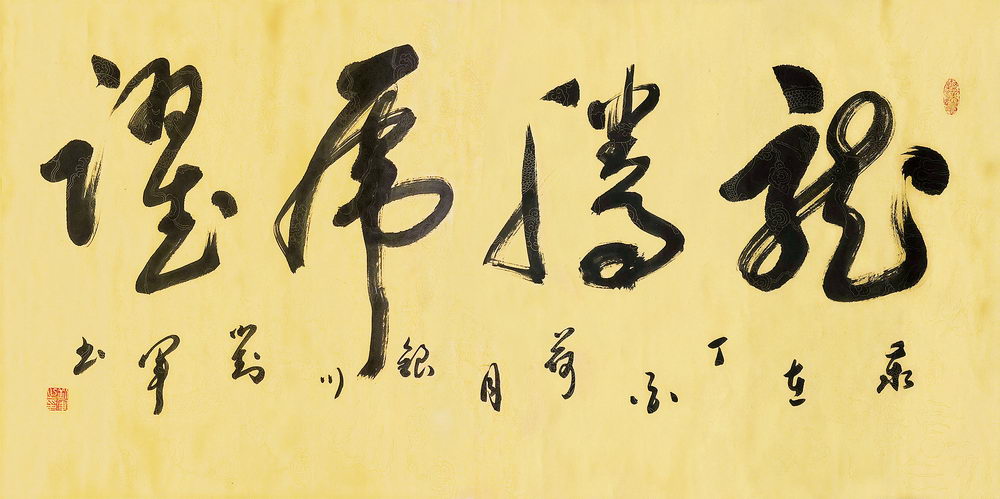 龍騰虎躍
歲在丁亥荷月銀川劉軍書